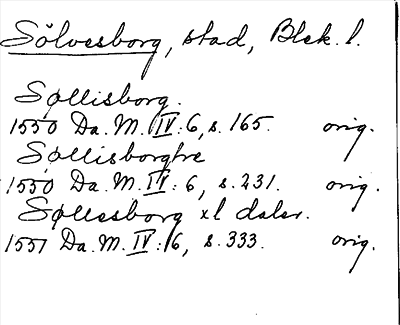 Sölvesborg, stad, Blek. l.
Søllisborg.
1550 Da. M. IV: 6, s. 165. orig.
Søllisborghe
1550 Da. M. IV: 6, s. 231. orig.
Søllessborg xl daler.
1551 Da. M. IV: 6, s. 333. orig.